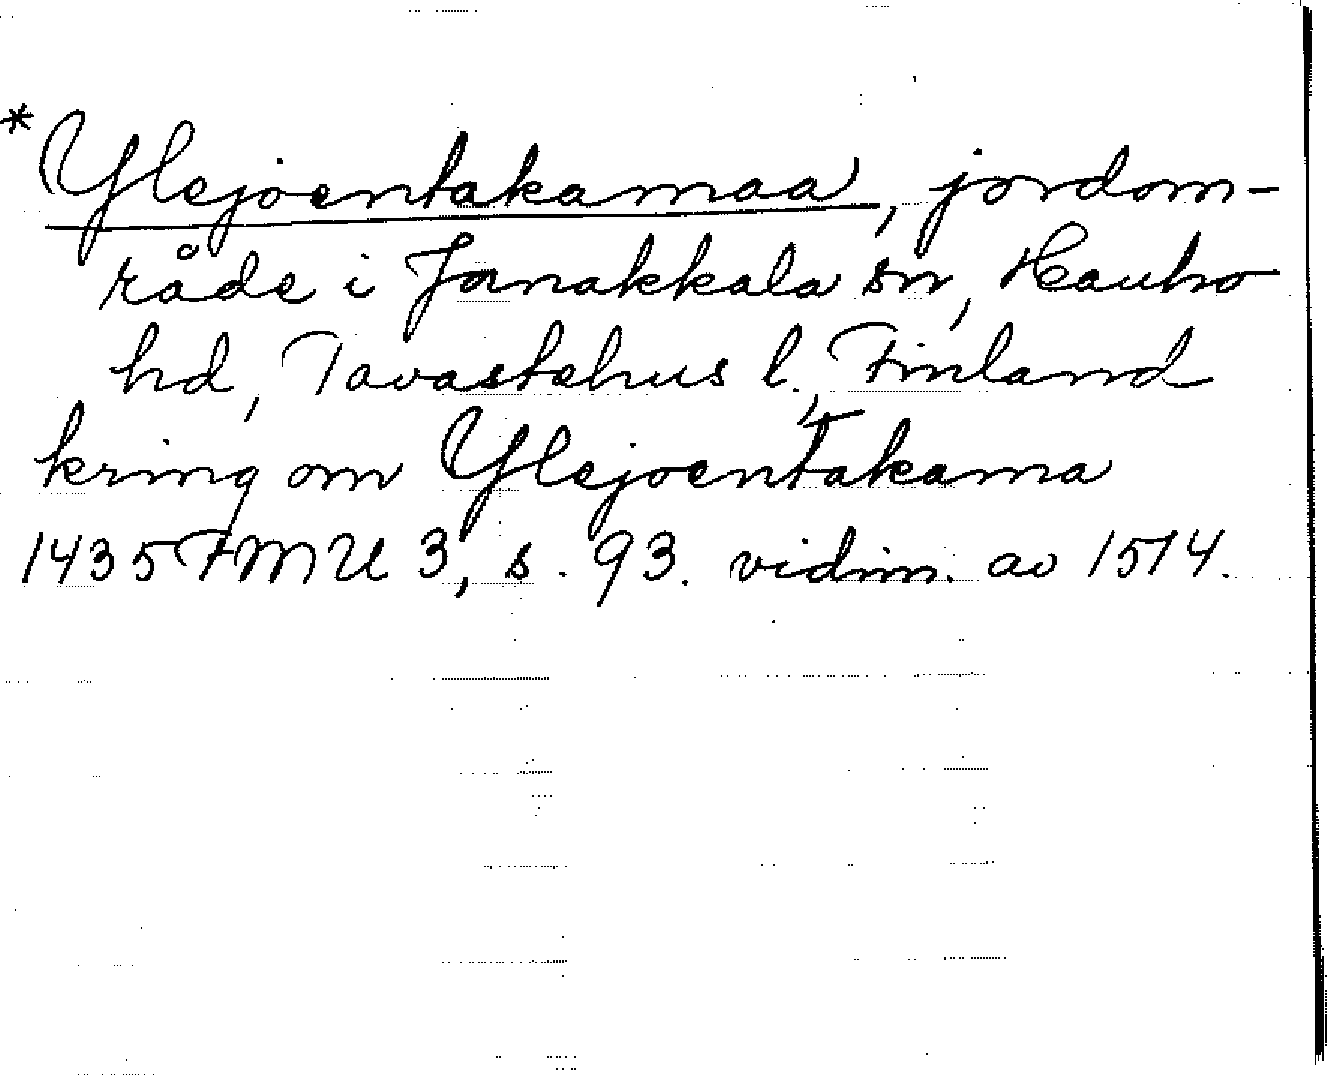 *Ylejoentakamaa, jordom-
råde i Janakkala sn, Hauho
hd, Tavastehus l., Finland
kring om Ylejoentakama
1435 FMU 3, s. 93. vidim. av 1514.